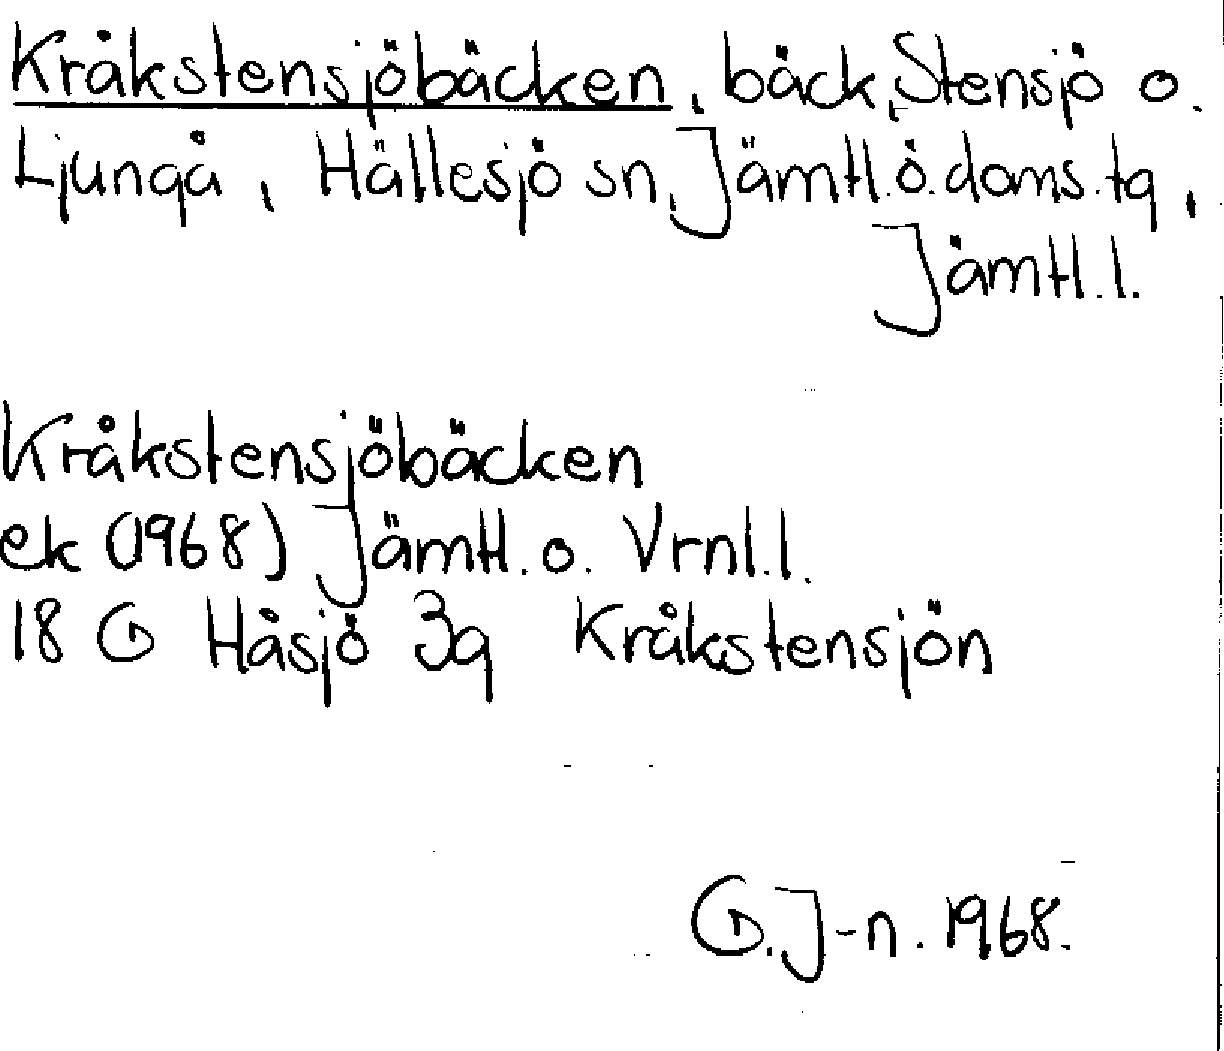 Kråkstensjöbäcken, bäck, Stensjö o.
Ljungå, Hällesjö sn, Jämtl. ö. doms. tg,
Jämtl. l.
Kråkstensjöbäcken
ek (1968) Jämtl. o. Vrnl. l.
18 G Håsjö 3g Kråkstensjön
G. J-n. 1968.